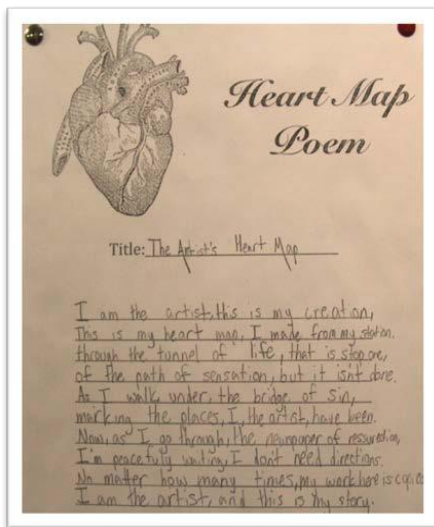 Heart Map
Poem
Title: The Artist's Heart Map
I am the artist, this is my creation,
This is my heart map, I made from my station.
through the tunnel of life, that is stop one,
of the path of sensation, but it isn't done.
As I walk under the bridge of sin,
marking the places, I, the artist, have been.
Now, as I go through, the of
I'm peacefuly waiting, I don't need directions.
No matter how many times, my work here is
I am the artist, and this is my story.